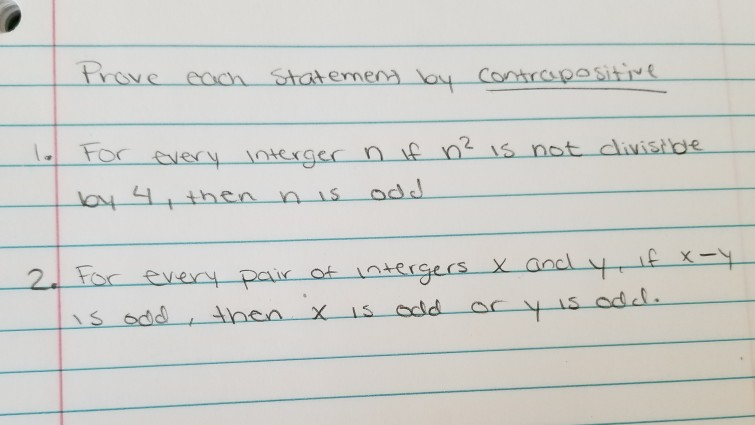 Prove each Statement by Contrapositive
1. For every interger n if n² is not divisible
by 4, then n is odd
2. For every pair of intergers x and y, if x-y
is odd, then x is odd or y is odd.